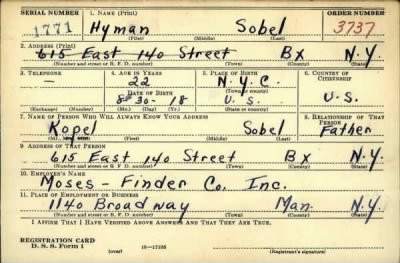 SERIAL NUMBER 1. NAME (Print) ORDER NUMBER
1771 Hyman Sobel 3737
(First) (Middle) (Last)
2. ADDRESS (Print)
615 East 140 Street Bx N.Y.
(Number and street or R. F. D. number) (Town) (County) (State)
3. TELEPHONE 4. AGE IN YEARS 5. PLACE OF BIRTH 6. COUNTRY OF CITIZENSHIP
— 22 N.Y.C.
DATE OF BIRTH (Town) (County)
8-30-18 U.S. U.S.
(Exchange) (Number) (Mo.) (Day) (Yr.) (State or country)
7. NAME OF PERSON WHO WILL ALWAYS KNOW YOUR ADDRESS 8. RELATIONSHIP OF THAT PERSON
Kopel Sobel Father
(First) (Middle) (Last)
9. ADDRESS OF THAT PERSON
615 East 140 Street Bx N.Y.
(Number and street or R. F. D. number) (Town) (County) (State)
10. EMPLOYER'S NAME
Moses – Finder Co. Inc.
11. PLACE OF EMPLOYMENT OR BUSINESS
1140 Broadway Man. N.Y.
(Number and street or R. F. D. number) (Town) (County) (State)
I AFFIRM THAT I HAVE VERIFIED ABOVE ANSWERS AND THAT THEY ARE TRUE.
REGISTRATION CARD
D. S. S. Form 1 (over) 16—17105 (Registrant's signature)